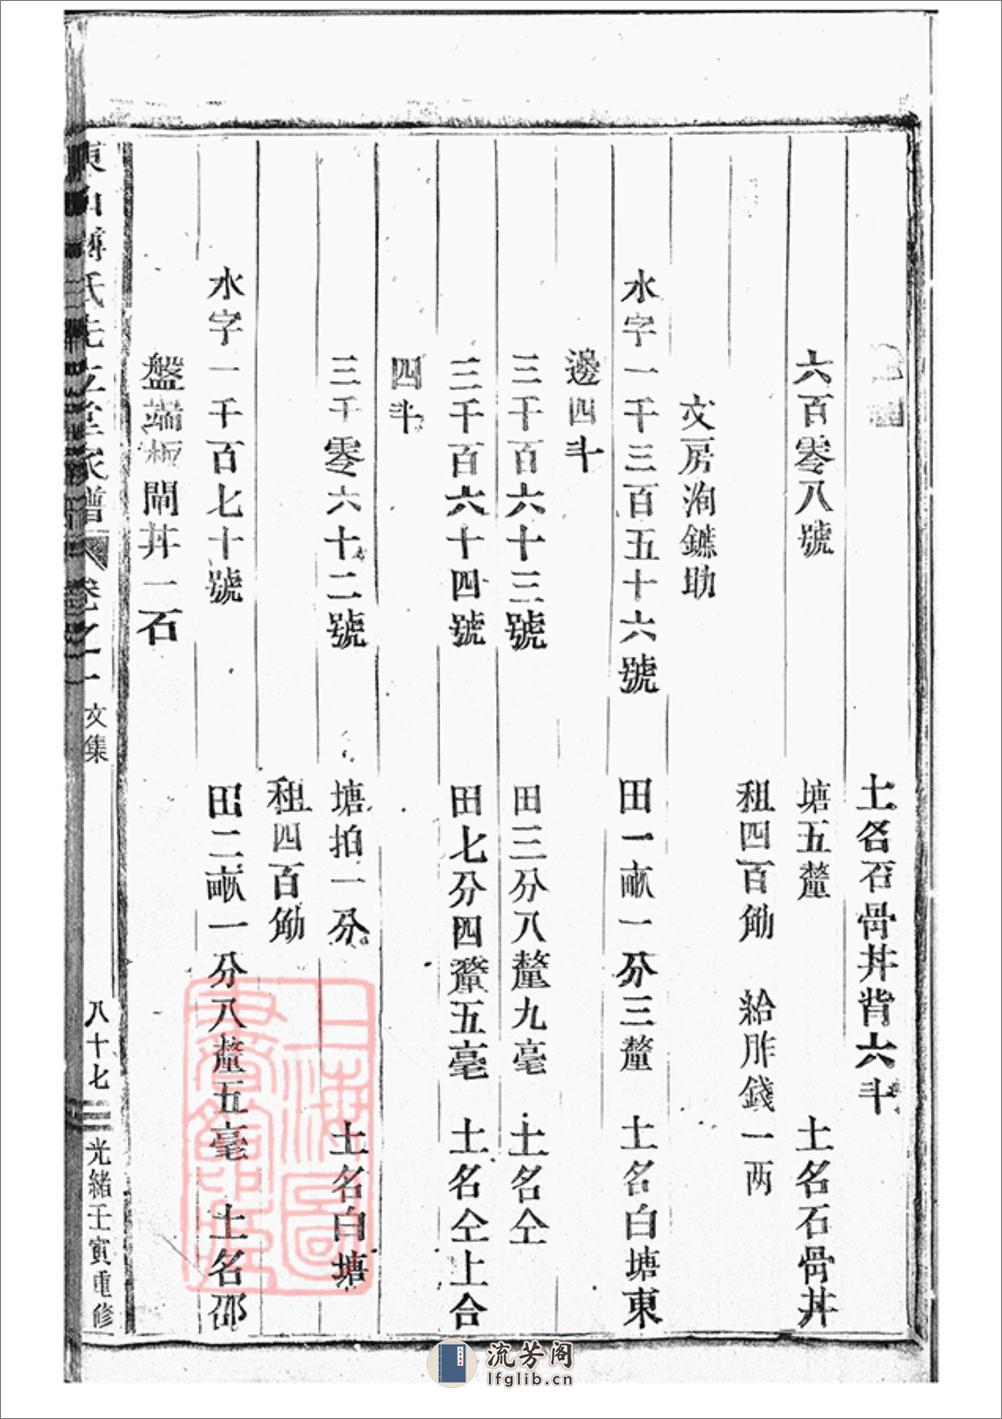 土名石骨丼背六斗
六百零八號 塘五釐 土名石骨丼
租四百觔 給胙錢一两
文房洵鑣助
水字一千三百五十六號 田一畝一分三釐 土名白塘東
邊四斗
三千百六十三號 田三分八釐九毫 土名仝
三千百六十四號 田七分四釐五毫 土名仝上合
四斗
三千零六十二號 塘拍一分 土名白塘
租四百觔
水字一千百七十號 田二畝一分八釐五毫 土名邵
盤端板閘丼一石
氏先立堂家譜 卷之一 文集 八十七 光緒壬寅重修
上海圖書館藏
流芳阁
lfglib.cn